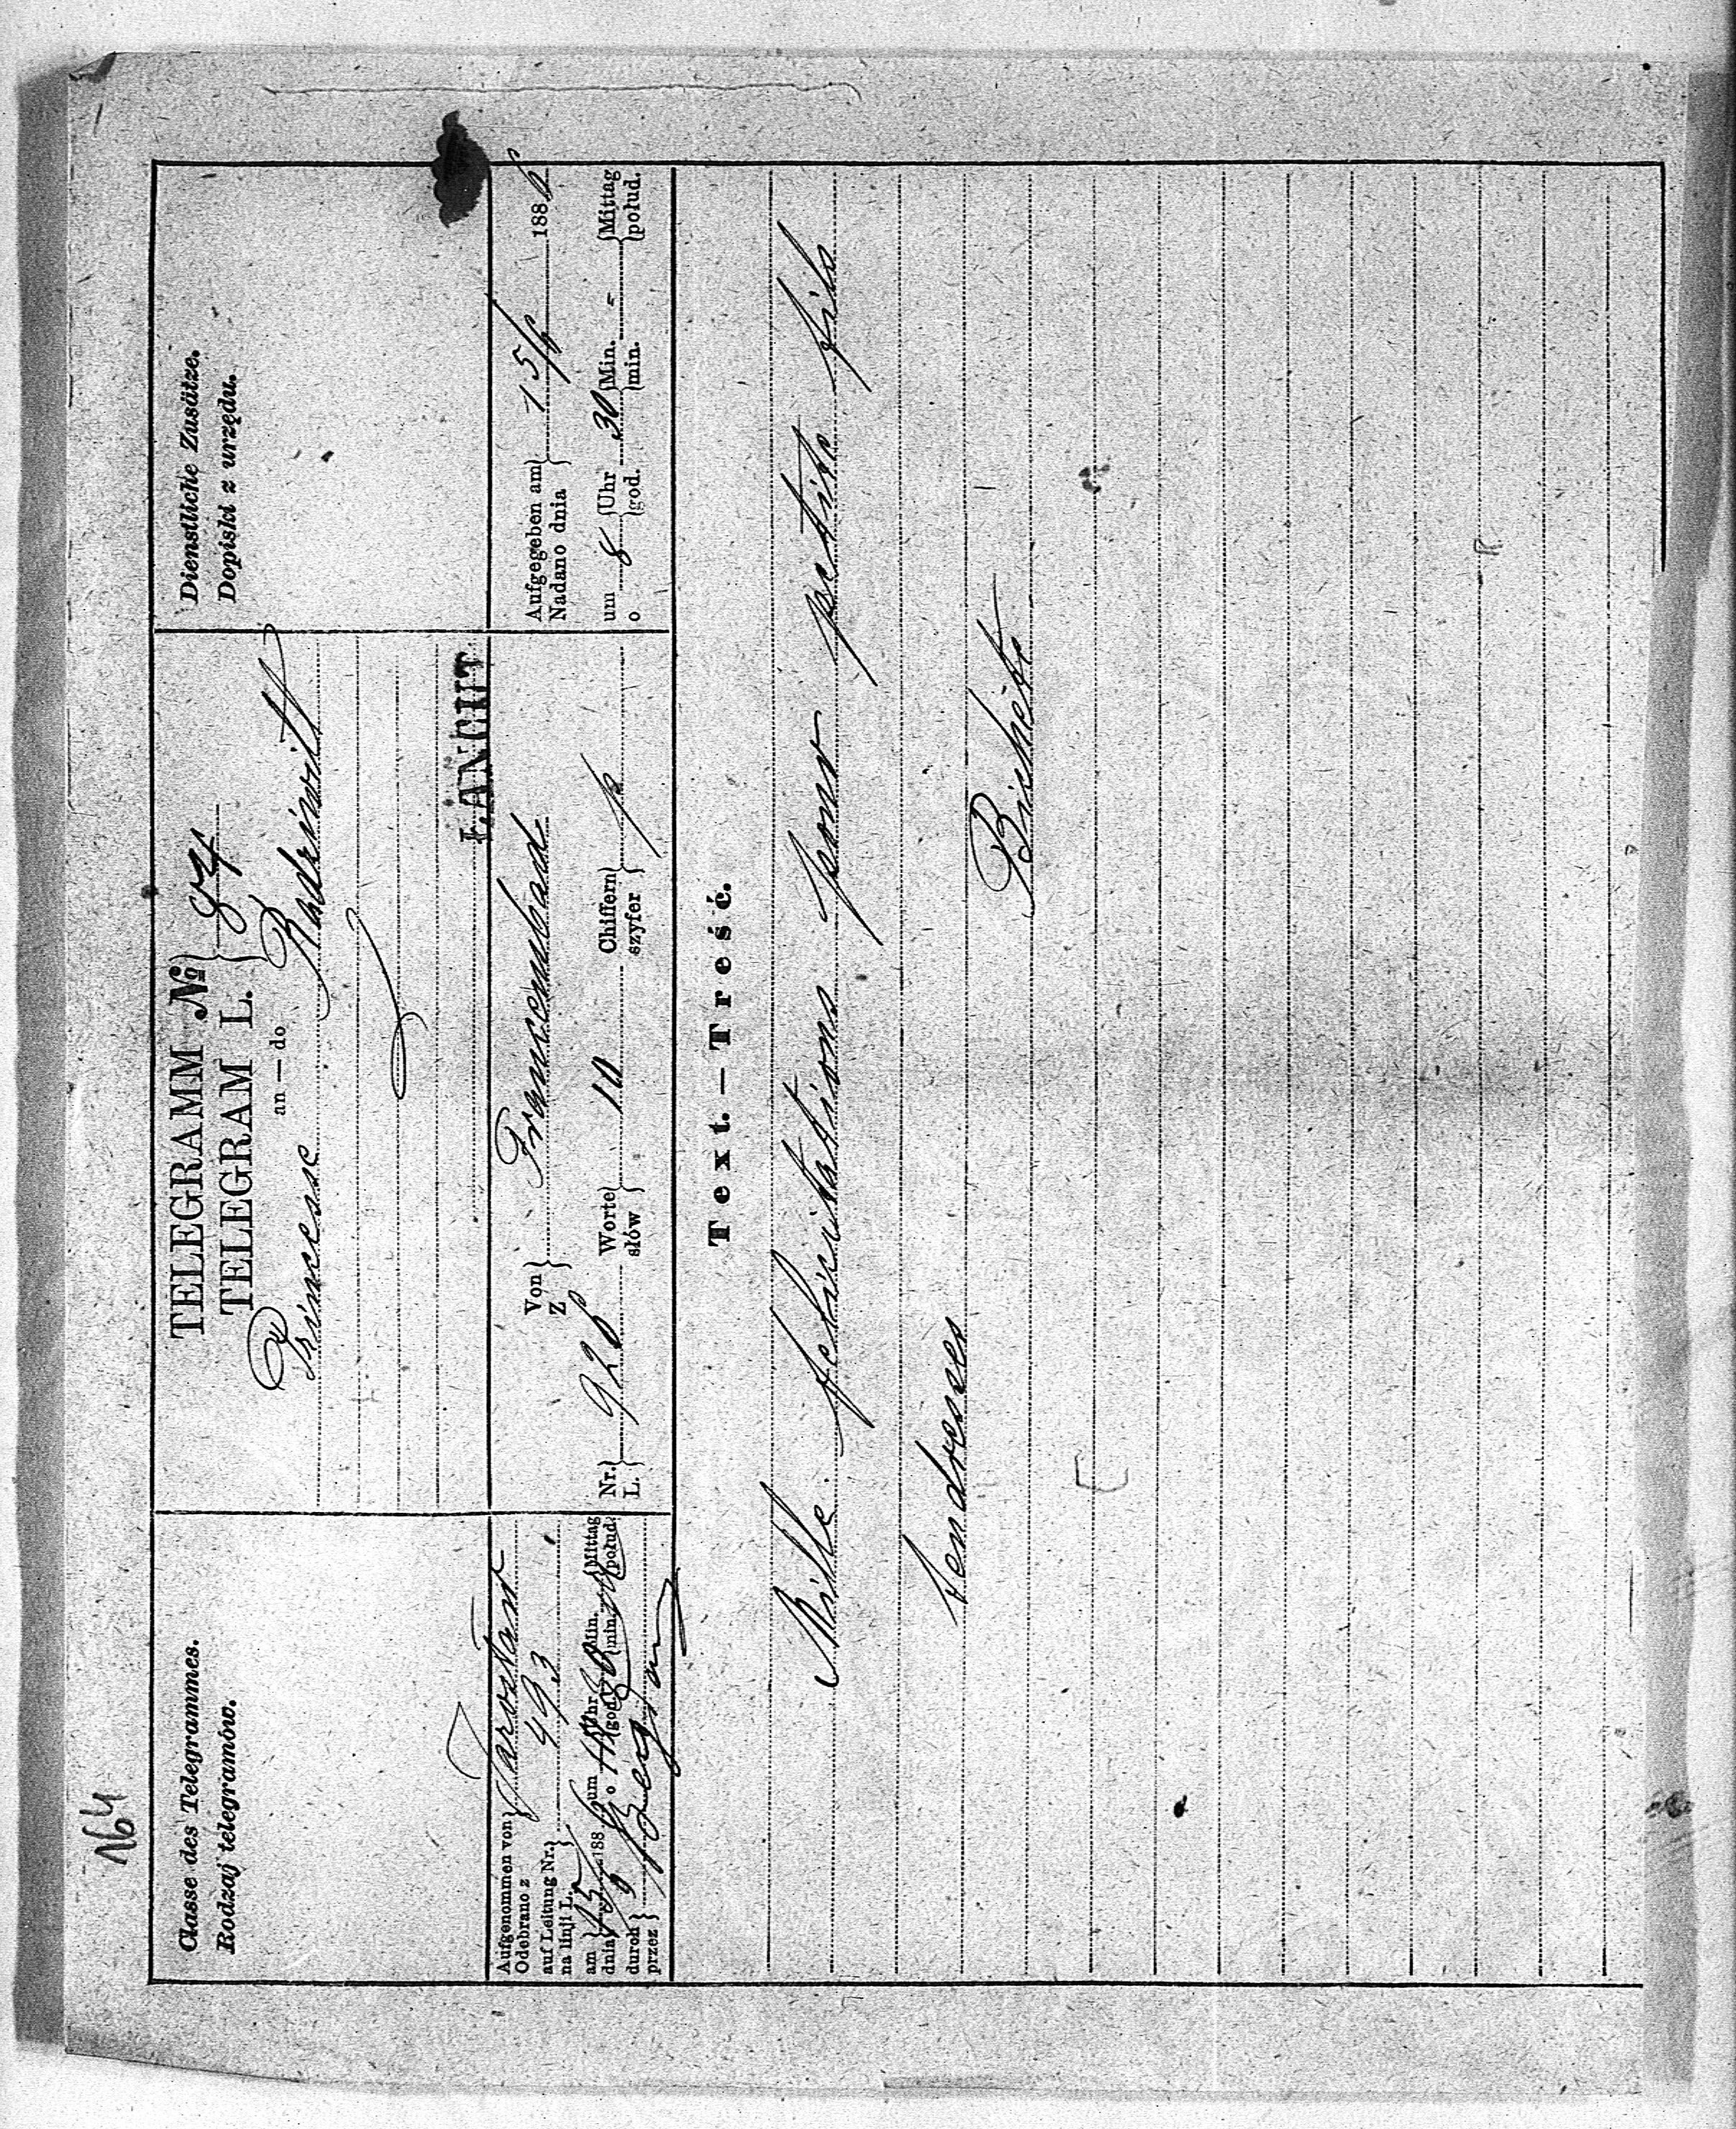 164
Classe des Telegrammes.
Rodzaj telegramów.
TELEGRAMM №
TELEGRAM L.
an — do
Princesse Radziwill
ŁAŃCUT
Dienstliche Zusätze.
Dopiski z urzędu.
Aufgenommen von
Odebrano z
Jaroslau
auf Leitung Nr.
na linji L.
493
am 15/6 188 6 um Uhr Min. Mittag
dnia o god. min. połud.
durch
przez
Von
Z
Francensbad
Nr. 926 Worte 10 Chiffern
L. słów szyfer
Aufgegeben am 15/6 1886
Nadano dnia
um 8 Uhr 30 Min. - Mittag
o god. min. połud.
Text. — Treść.
Mille felicitations pour petite fils
tendresses Bichette